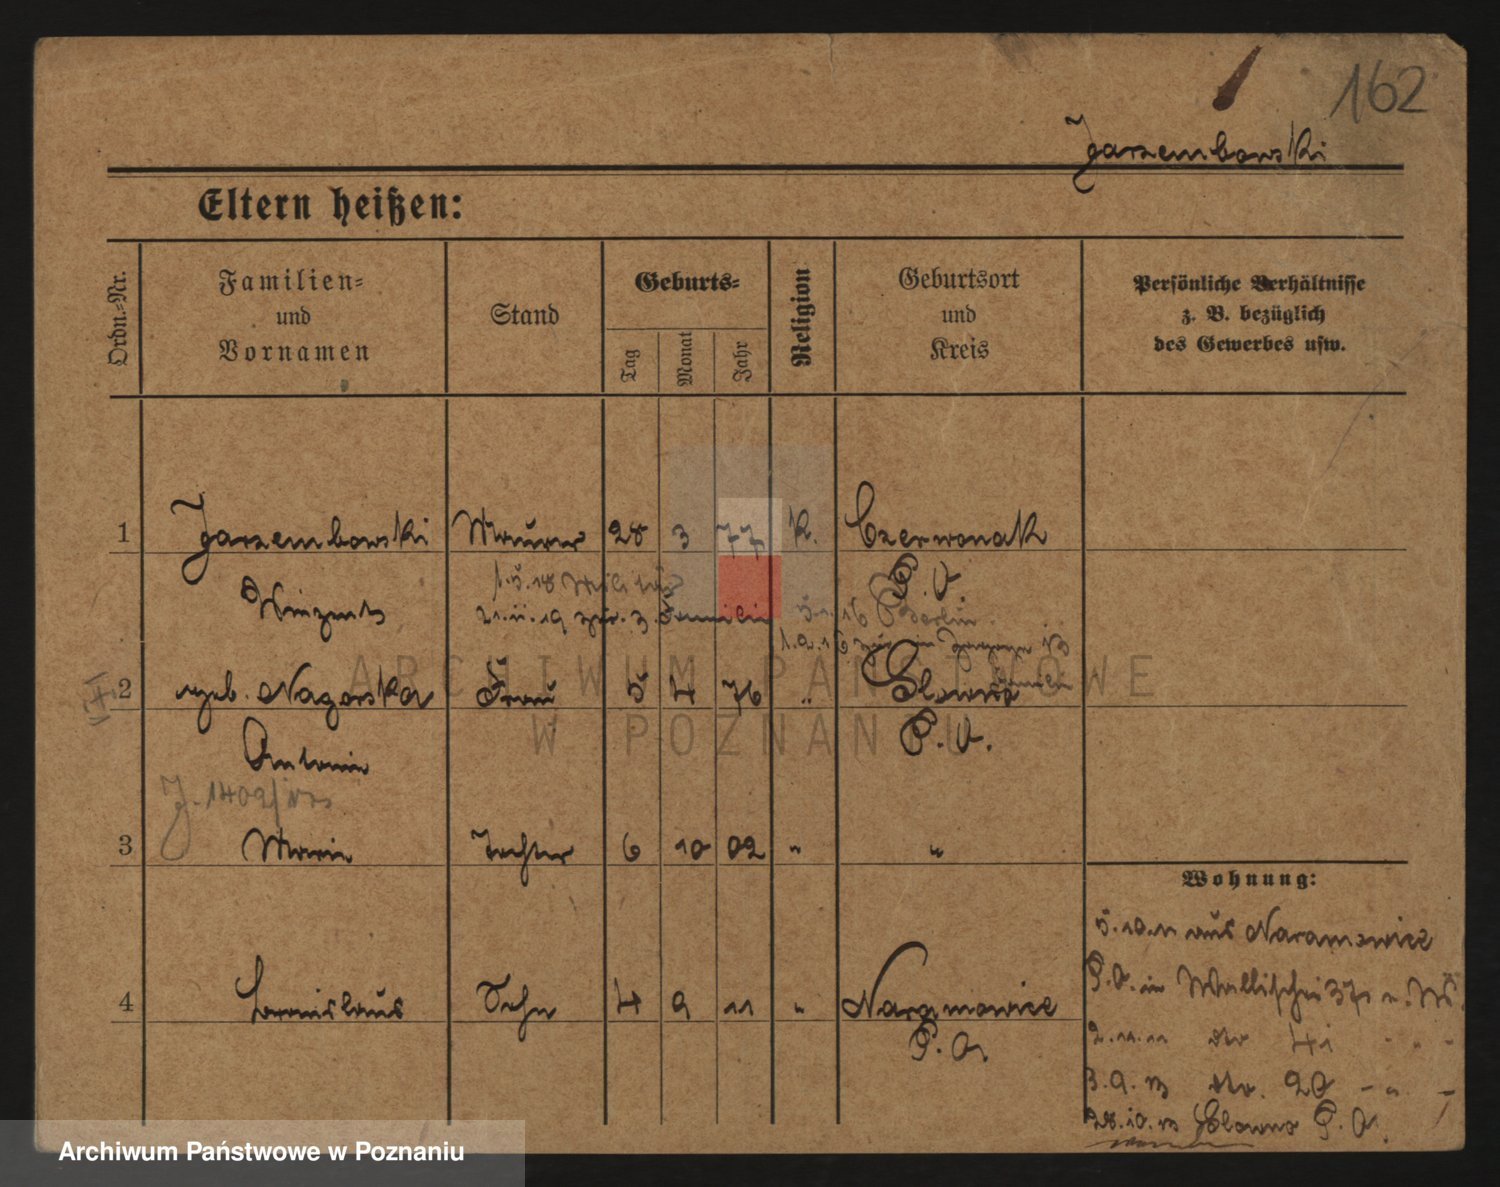 162
Jarzembowski
Eltern heißen:
Ordn.-Nr.
Familien- und Vornamen
Stand
Geburts-
Tag
Monat
Jahr
Religion
Geburtsort und Kreis
Persönliche Verhältnisse z. B. bezüglich des Gewerbes usw.
1 Jarzembowski Maurer 28 3 77 K. Czerwonak
Winzent P. O.
21.11.19 zur. z. Familie
Berlin
2 geb. Nagorska Frau 5 4 76 " Glowno
Antonie P. O.
3 Marie Tochter 6 10 02 " "
Wohnung:
5.10.11 aus Naramowice
P. O. in Wallischei
4 Stanislaus Sohn 4 9 11 " Naramowice
P. O.
2.11.11 41 " "
3.9.13 20
28.10.13 Glowno P. O.
ARCHIWUM PAŃSTWOWE
W POZNANIU
Archiwum Państwowe w Poznaniu